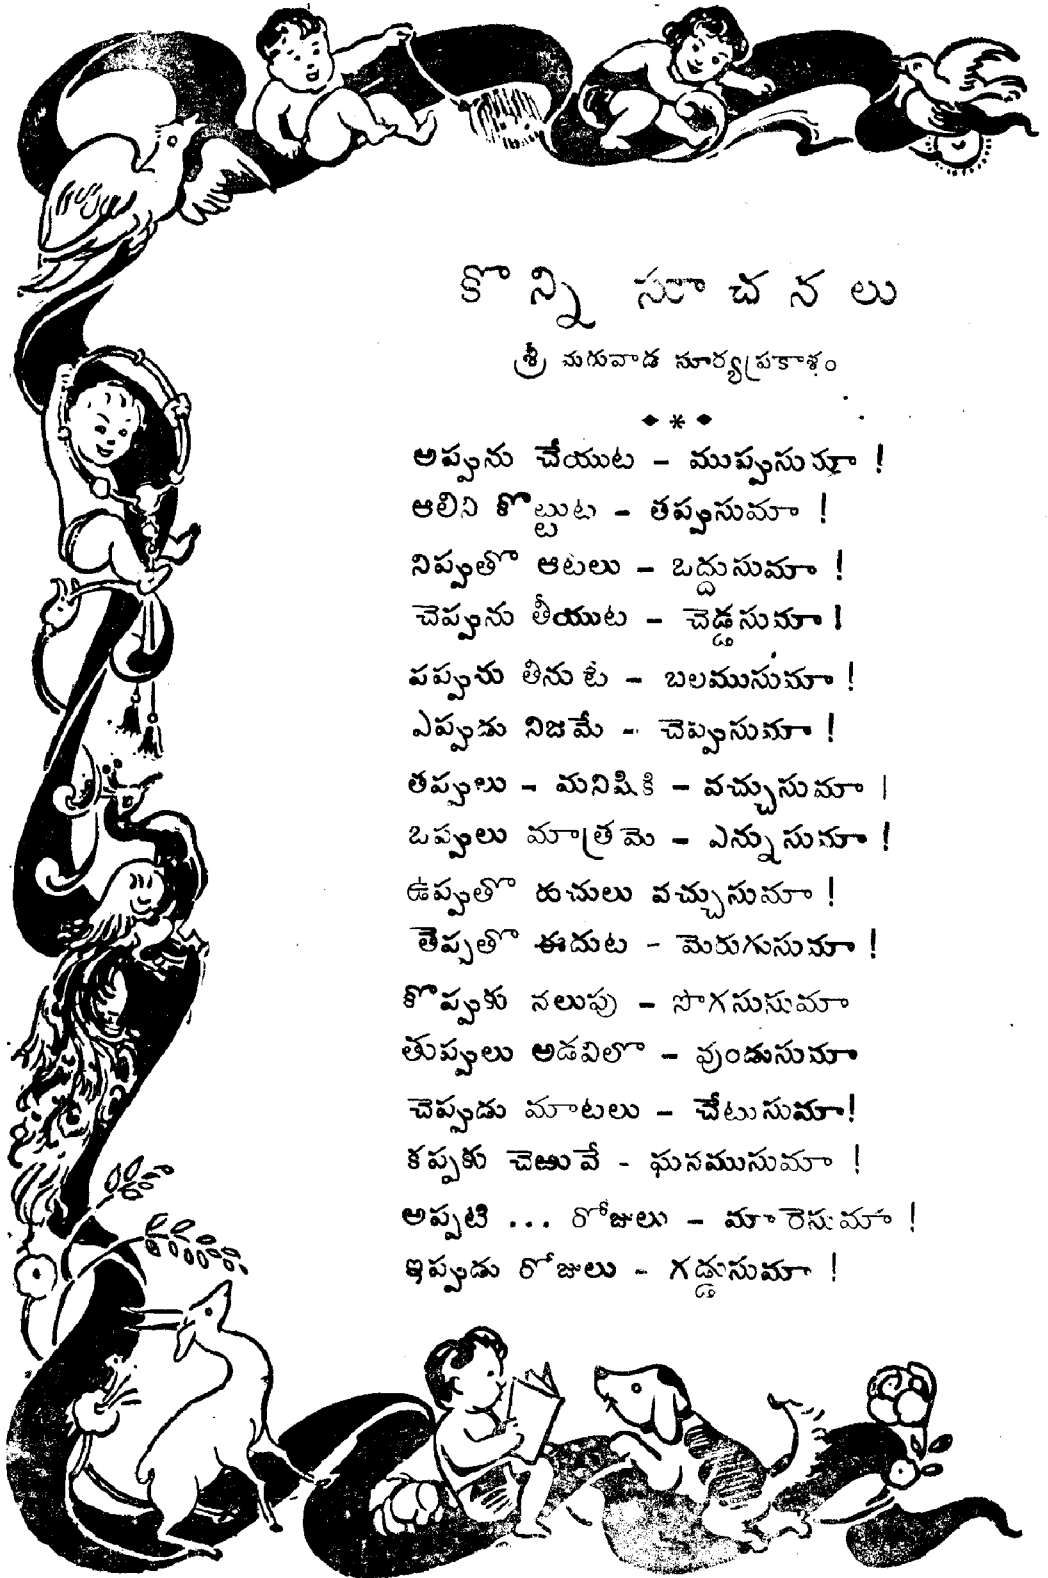 కొన్ని సూచనలు
శ్రీ నుగువాడ సూర్యప్రకాశం
అప్పును చేయుట - ముప్పుసుమా !
ఆలిని కొట్టుట - తప్పుసుమా !
నిప్పుతొ ఆటలు - ఒద్దుసుమా !
చెప్పును తీయుట - చెడ్డసుమా !
పప్పును తినుటే - బలముసుమా !
ఎప్పుడు నిజమే - చెప్పుసుమా !
తప్పులు - మనిషికి - వచ్చుసుమా !
ఒప్పులు మాత్రమె - ఎన్నుసుమా !
ఉప్పుతొ రుచులు వచ్చుసుమా !
తెప్పతొ ఈదుట - మెరుగుసుమా !
కొప్పుకు నలుపు - సొగసుసుమా
తుప్పలు అడవిలొ - వుండుసుమా
చెప్పుడు మాటలు - చేటుసుమా!
కప్పకు చెఱువే - ఘనముసుమా !
అప్పటి ... రోజులు - మారెసుమా !
ఇప్పుడు రోజులు - గడ్డుసుమా !